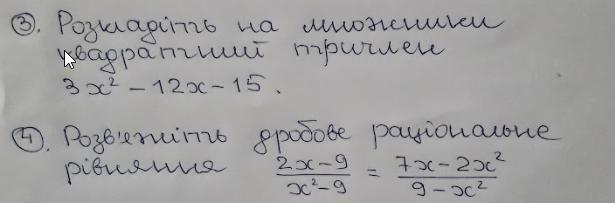 ③. Розкладіть на множники
квадратний тричлен
3x² - 12x - 15.
④. Розв'яжіть дробове раціональне
рівняння (2x-9)/(x²-9) = (7x-2x²)/(9-x²)